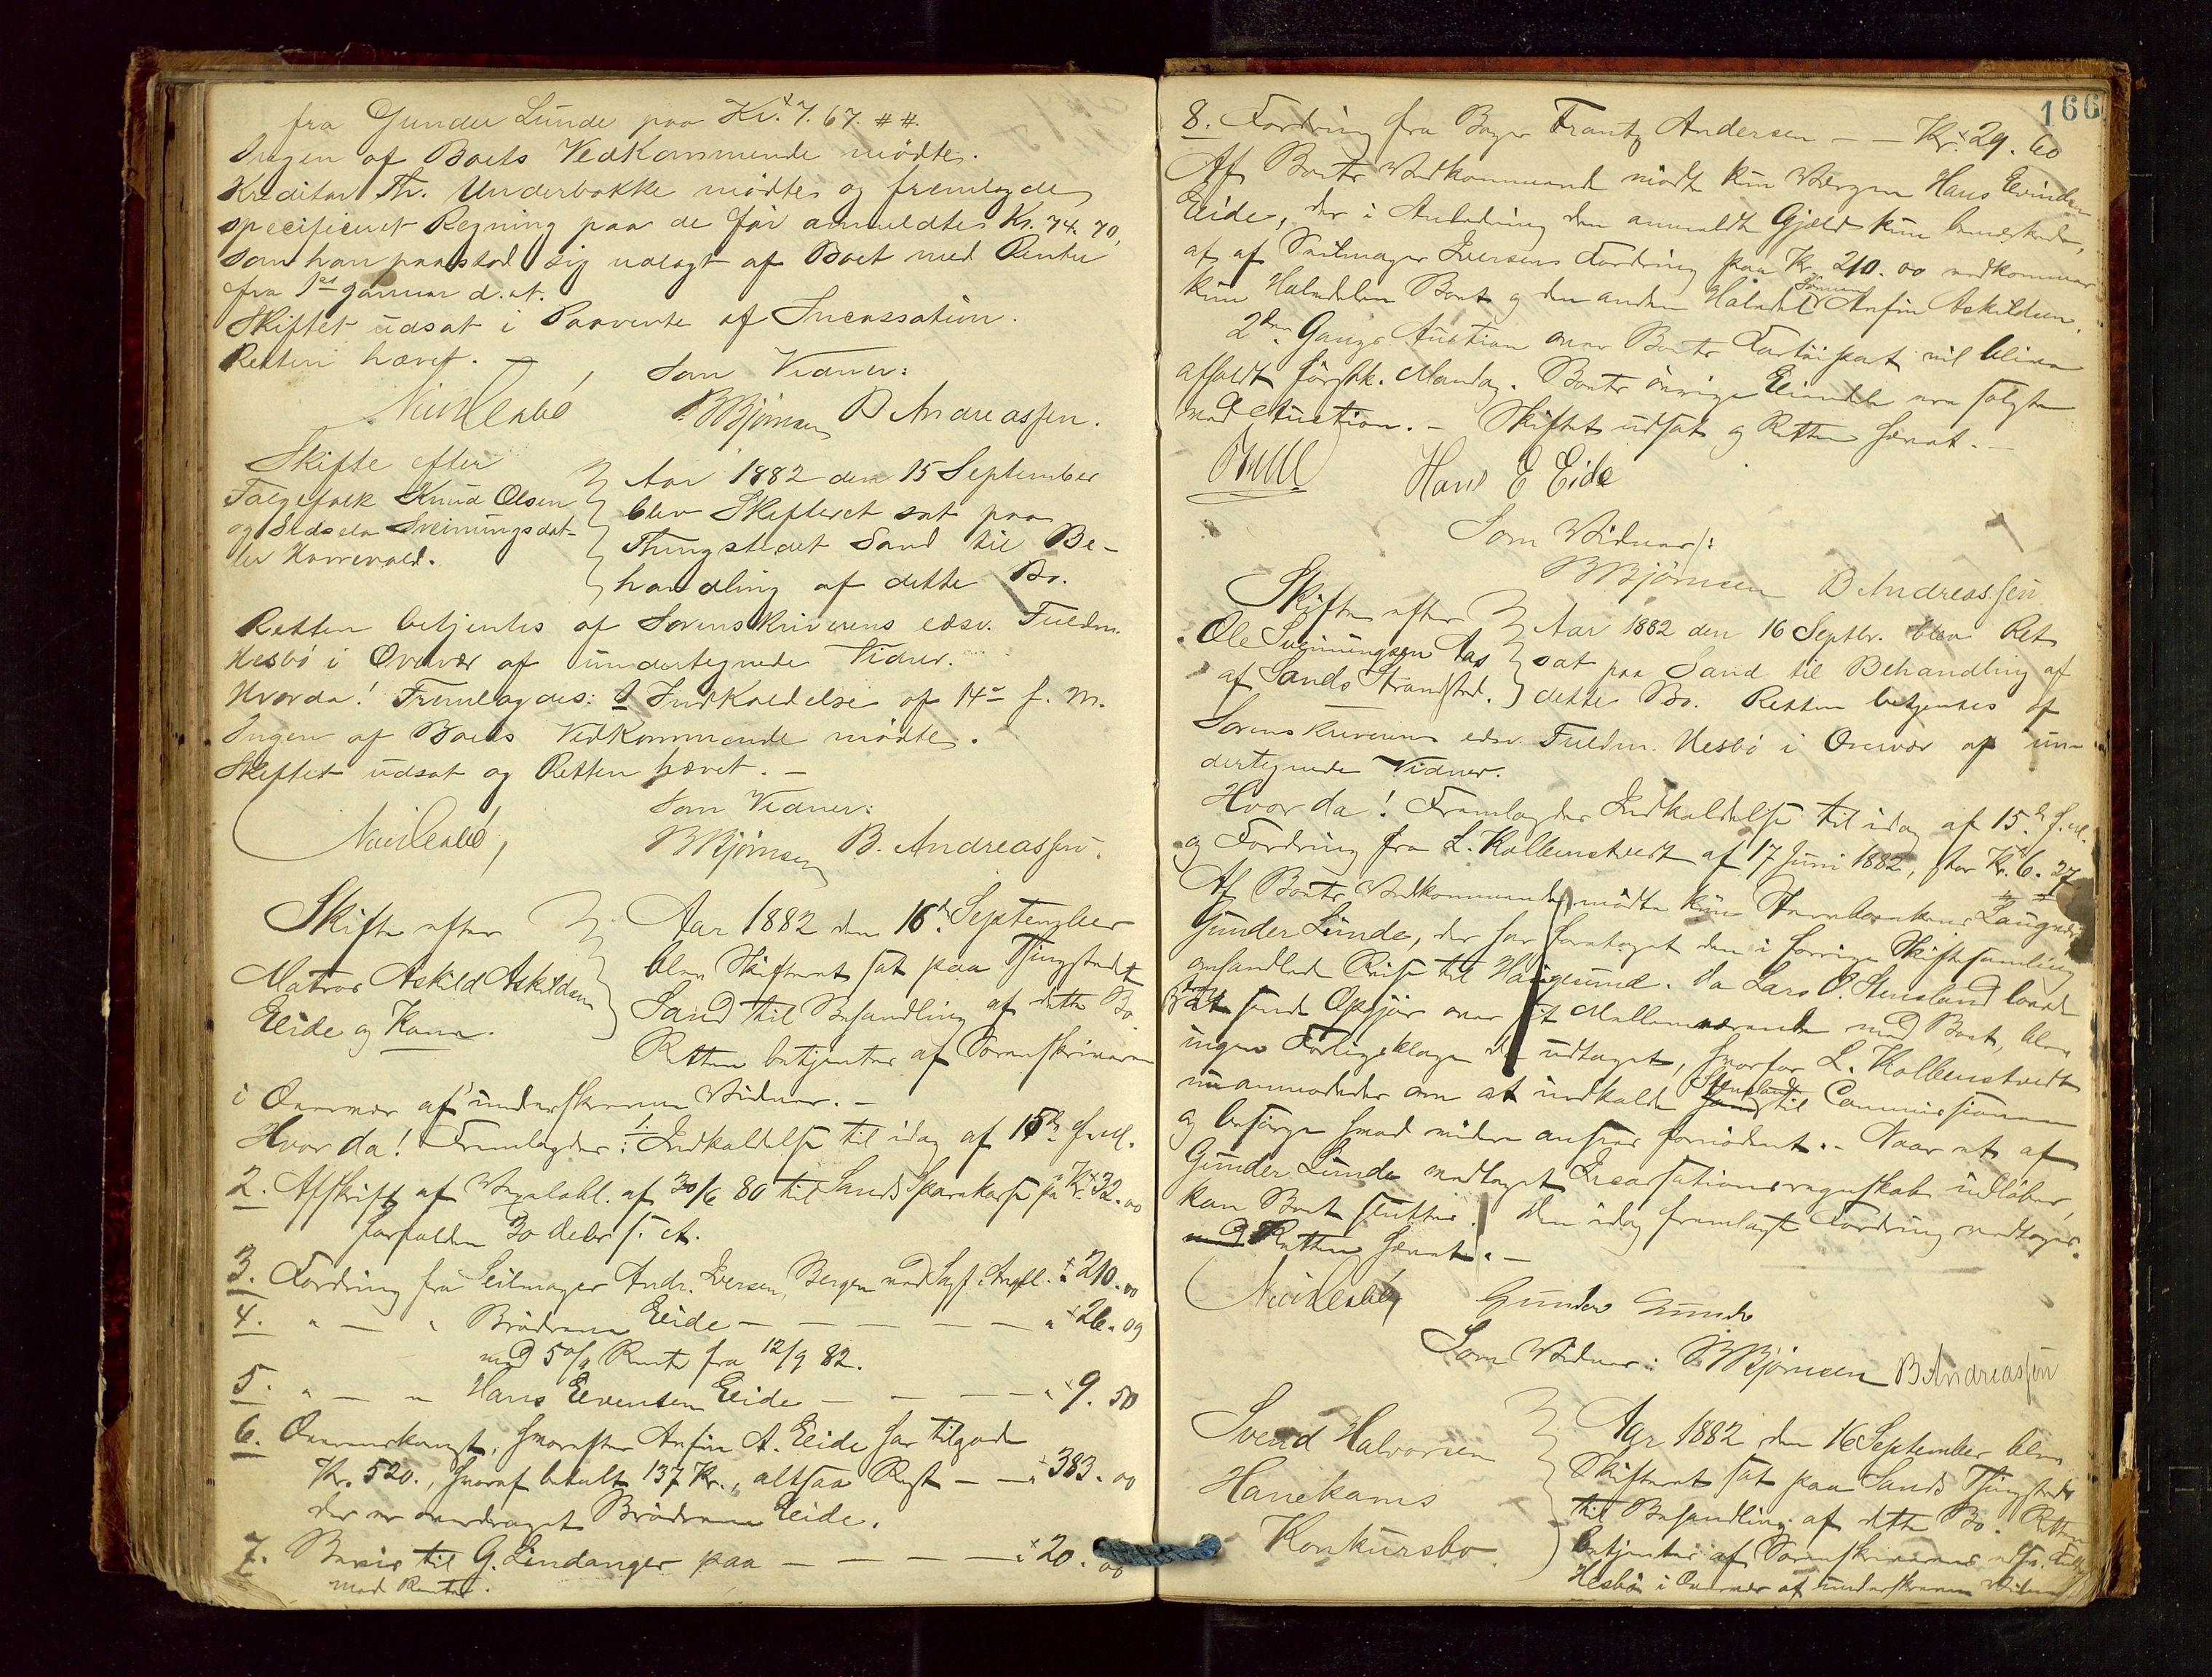 fra Gunder Lunde paa Kr. 7. 67. ##.
Ingen af Boets Vedkommende mödte.
Kreditor Th. Underbakke mödte og fremlagde
specificeret Regning paa de för anmeldte Kr. 74. 70,
som han paastod sig udlagt af Boet med Renter
fra 1ste Januar d. A.
Skiftet udsat i Paavente af Incassation.
Retten hævet. —
Som Vidner:
BBjörnsen B Andreassen.
Skifte efter
Følgefolk Knud Olsen
og Sidsela Sveinungsdat-
ter Havrevold.
Aar 1882 den 15 September
blev Skifteret sat paa
Thingstedet Sand til Be-
handling af dette Bo.
Retten betjentes af Sorenskriverens edsv. Fuldm.
Hesbö i Overvær af undertegnede Vidner.
Hvorda! Fremlagdes: 1 Indkaldelse af 14de f. M.
Ingen af Boets Vedkommende mödte.
Skiftet udsat og Retten hævet. —
Som Vidner:
BBjörnsen B. Andreassen.
Skifte efter
Matros Askild Askildsen
Eide og Kone.
Aar 1882 den 16de September
blev Skifteret sat paa Thingstedet
Sand til Behandling af dette Bo.
Retten betjentes af Sorenskriveren
i Overvær af underskrevne Vidner. —
Hvorda! Fremlagdes: 1. Indkaldelse til idag af 15de f. M.
2. Afskrift af Vexelobl. af 30/6 80 til Sands Sparekasse på Kr. 32. 00
forfalden 30 debr f. A.
3. Fordring fra Seilmager Andr. Iversen, Bergen " 210. 00
4. " — " Brödrene Eide — — — — — " 26. 09
med 5 o/o Rente fra 12/9 82.
5. " — " Hans Eevensen Eide — — — — " 9. 50
6. Overenskomst, hvorefter Anfin A. Eide har tilgode
Kr. 520., hvoraf betalt 137 Kr., altsaa Rest — — " 383. 00
der er overdraget Brödrene Eide.
7. Bevis til G. Lindanger paa — — — — " 20. 00
med Renter.
166
8. Fordring fra Bager Frantz Andersen — — Kr. 29. 60
Af Boets Vedkommende mödte kun Værgen Hans Eevindsen
Eide, der i Anledning den anmeldte Gjæld kun bemærkede,
at af Seilmager Iversens Fordring paa Kr. 210. 00 vedkommer
kun Halvdelen Boet og den anden Halvdel Sönnen Anfin Askildsen.
2den Gangs Auction over Boets Fartöipart vil blive
afholdt förstk. Mandag. Boets övrige Eiendele ere solgte
ved Auction. — Skiftet udsat og Retten hævet. —
Hans E Eide
Som Vidner:
BBjörnsen B Andreassen
Skifte efter
Ole Sveinungsen Aas
af Sands Strandsted.
Aar 1882 den 16 Septbr. blev Ret
sat paa Sand til Behandling af
dette Bo. Retten betjentes af
Sorenskriverens edsv. Fuldm. Hesbö i Overvær af un-
dertegnede Vidner.
Hvor da! Fremlagdes Indkaldelse til idag af 15de f. M.
og Fordring fra L. Kolbenstvedt af 17 Juni 1882, stor Kr. 6. 27
Af Boets Vedkommende mödte kun
Gunder Lunde, der har foretaget den i forrige Skiftesamling
omhandlede Reise til Haugesund. Da Lars O. Stensland lovede
at sende Opgjör over sit Mellemværende med Boet, blev
ingen Forligsklage da udtaget, hvorfor L. Kolbenstvedt
nu anmodedes om at indkalde Stensland til Commissionen
og besörge hvad videre ansees fornödent. — Naar et af
Gunder Lunde modtaget Incassationsregnskab indlöber,
kan Boet sluttes. Den idag fremlagte Fordring vedtages.
Retten hævet. —
Gunder Lunde
Som Vidner: BBjörnsen B Andreassen
Svend Halvorsen
Hanekams
Konkursbo.
Aar 1882 den 16 September blev
Skifteret sat paa Sands Thingsted
til Behandling af dette Bo. Retten
betjentes af Sorenskriverens edsv. Fuldm.
Hesbö i Overvær af underskrevne Vidner